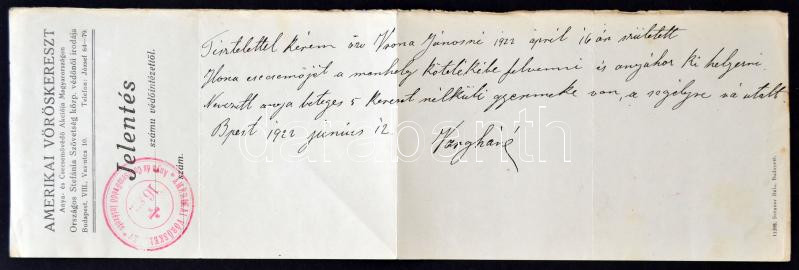 AMERIKAI VÖRÖSKERESZT
Anya- és Csecsemővédő Akciója Magyarországon
Országos Stefánia Szövetség Közp. védőnői irodája
Budapest, VIII., Vas-utca 10. Telefon: József 64–79.
Jelentés
számu védőintézettől.
szám.
Tisztelettel kérem özv Vrona Jánosné 1922 április 16 án született
Ilona csecsemőjét a menhely kötelékébe felvenni és anyához ki helyezni.
Nevezett anya beteges 5 kereset nélküli gyermeke van, a segélyre rá utalt.
Bpest 1922 június 12.
Vargháné
darabanth